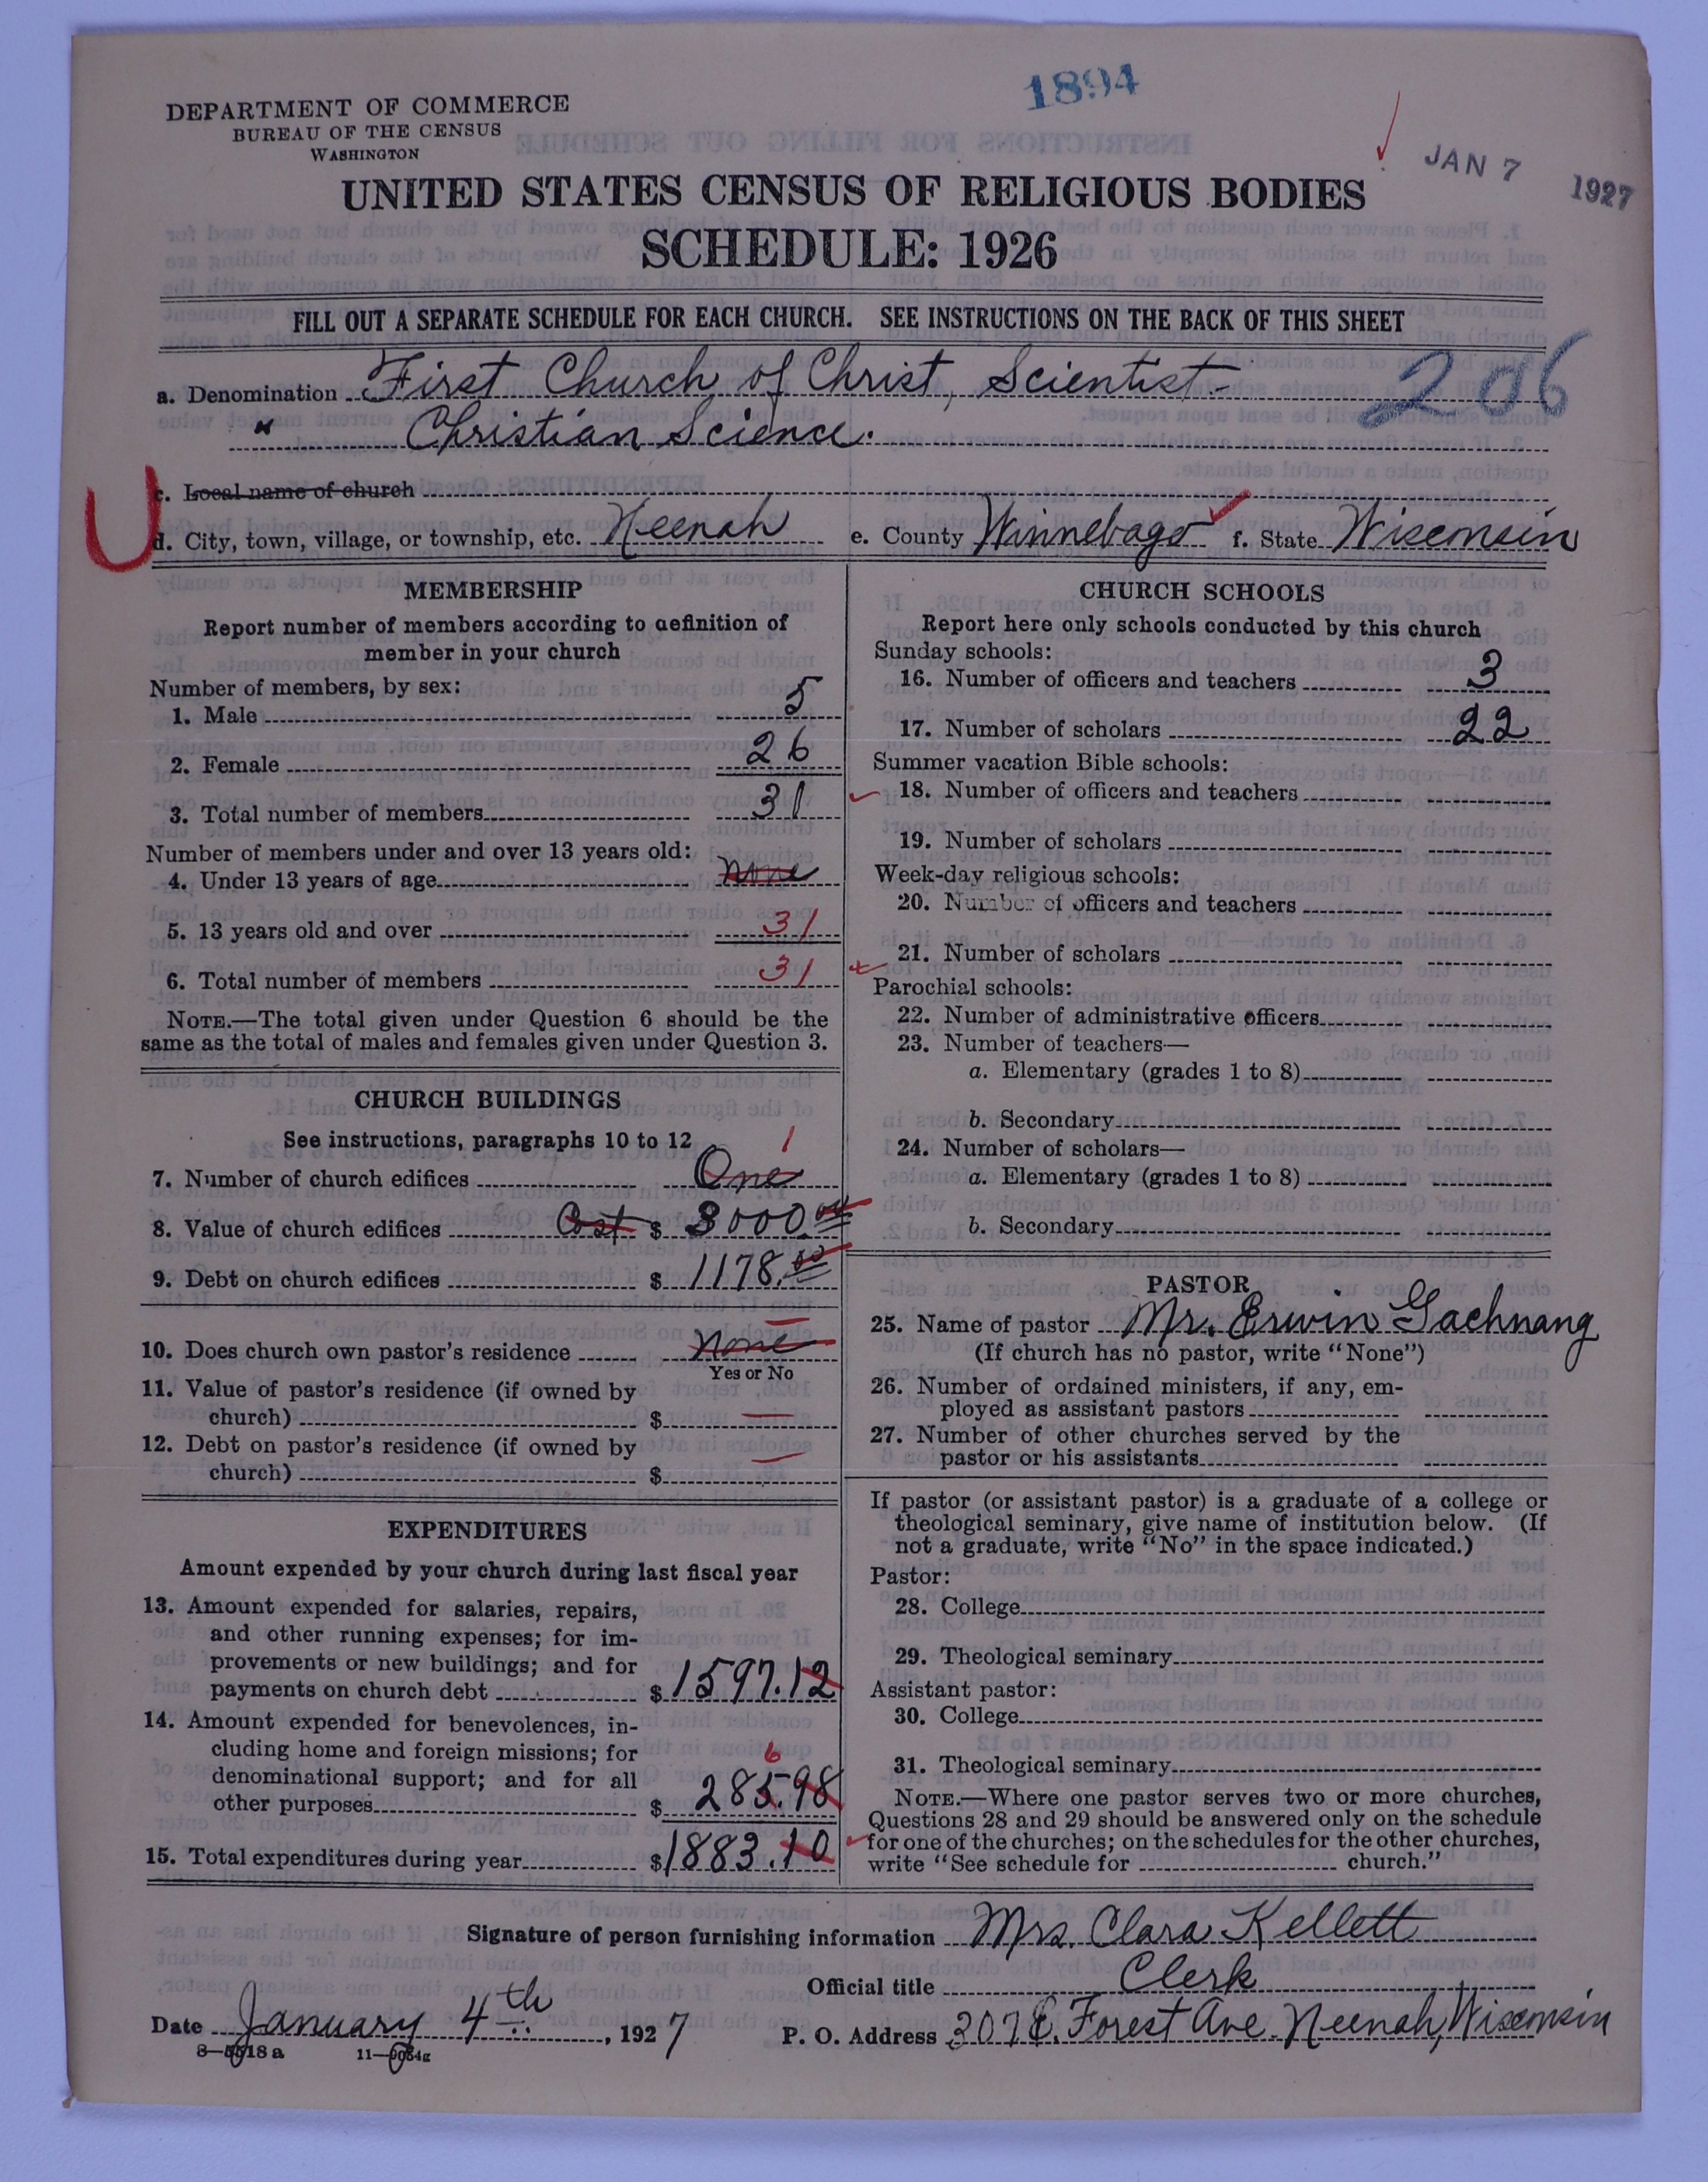 1894
DEPARTMENT OF COMMERCE
BUREAU OF THE CENSUS
WASHINGTON
JAN 7 1927
UNITED STATES CENSUS OF RELIGIOUS BODIES
SCHEDULE: 1926
FILL OUT A SEPARATE SCHEDULE FOR EACH CHURCH. SEE INSTRUCTIONS ON THE BACK OF THIS SHEET
206
a. Denomination First Church of Christ, Scientist-
" Christian Science.
c. Local name of church
U
d. City, town, village, or township, etc. Neenah e. County Winnebago f. State Wisconsin
MEMBERSHIP
Report number of members according to definition of
member in your church
Number of members, by sex:
1. Male 5
2. Female 26
3. Total number of members 31
Number of members under and over 13 years old:
4. Under 13 years of age none
5. 13 years old and over 31
6. Total number of members 31
NOTE.—The total given under Question 6 should be the
same as the total of males and females given under Question 3.
CHURCH BUILDINGS
See instructions, paragraphs 10 to 12
1
7. Number of church edifices One
8. Value of church edifices Cost $ 3000.00
9. Debt on church edifices $ 1178.00
10. Does church own pastor's residence None
Yes or No
11. Value of pastor's residence (if owned by
church) $ —
12. Debt on pastor's residence (if owned by
church) $ —
EXPENDITURES
Amount expended by your church during last fiscal year
13. Amount expended for salaries, repairs,
and other running expenses; for im-
provements or new buildings; and for
payments on church debt $ 1597.12
14. Amount expended for benevolences, in-
cluding home and foreign missions; for
6
denominational support; and for all
other purposes $ 285.98
15. Total expenditures during year $ 1883.10
CHURCH SCHOOLS
Report here only schools conducted by this church
Sunday schools:
16. Number of officers and teachers 3
17. Number of scholars 22
Summer vacation Bible schools:
18. Number of officers and teachers
19. Number of scholars
Week-day religious schools:
20. Number of officers and teachers
21. Number of scholars
Parochial schools:
22. Number of administrative officers
23. Number of teachers—
a. Elementary (grades 1 to 8)
b. Secondary
24. Number of scholars—
a. Elementary (grades 1 to 8)
b. Secondary
PASTOR
25. Name of pastor Mr. Erwin Gachnang
(If church has no pastor, write "None")
26. Number of ordained ministers, if any, em-
ployed as assistant pastors
27. Number of other churches served by the
pastor or his assistants
If pastor (or assistant pastor) is a graduate of a college or
theological seminary, give name of institution below. (If
not a graduate, write "No" in the space indicated.)
Pastor:
28. College
29. Theological seminary
Assistant pastor:
30. College
31. Theological seminary
NOTE.—Where one pastor serves two or more churches,
Questions 28 and 29 should be answered only on the schedule
for one of the churches; on the schedules for the other churches,
write "See schedule for church."
Signature of person furnishing information Mrs. Clara Kellett
Official title Clerk
Date January 4th, 1927 P. O. Address 307 E. Forest Ave. Neenah, Wisconsin
8—5518a 11—9054g